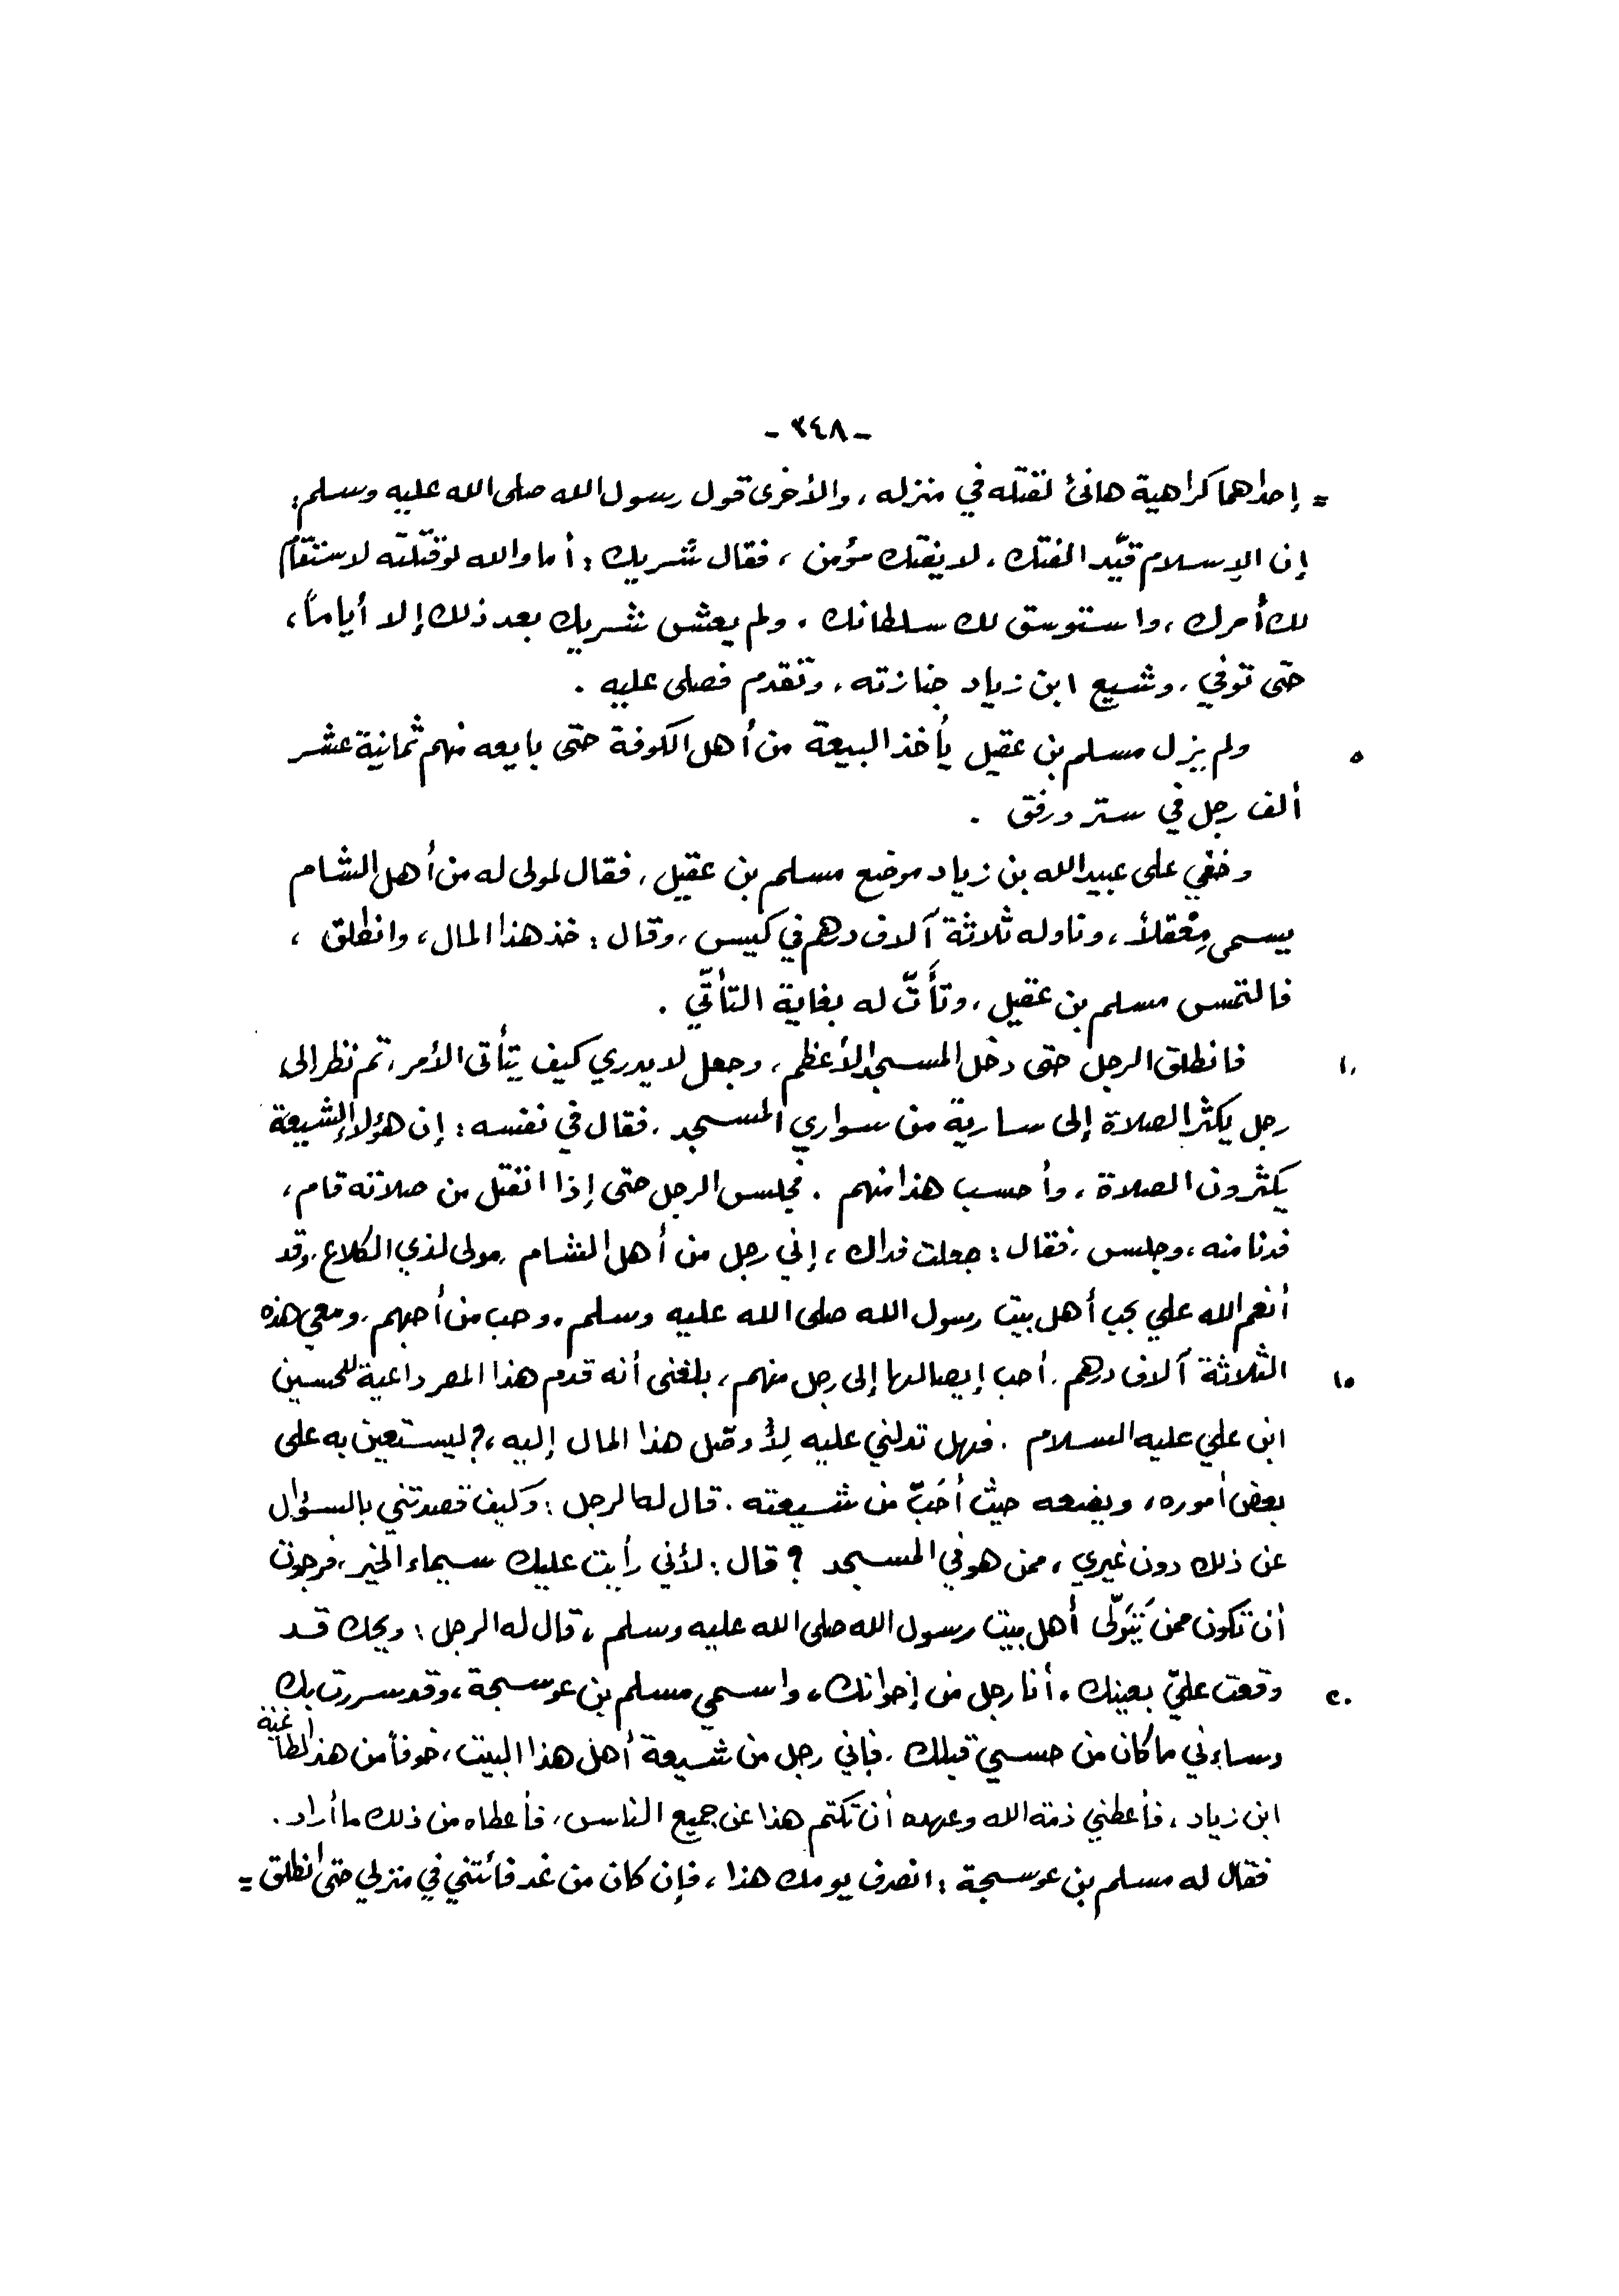 - ٣٤٨ -
= إحداهما كراهية هانئ لقتله في منزله، والأخرى قول رسول الله صلى الله عليه وسلم:
إن الإسلام قيّد الفتك، لا يفتك مؤمن، فقال شريك: أما والله لو قتلته لاستقام
لك أمرك، واستوسق لك سلطانك، ولم يعش شريك بعد ذلك إلا أياماً،
حتى توفي، وشيع ابن زياد جنازته، وتقدم فصلى عليه .
٥ ولم يزل مسلم بن عقيل يأخذ البيعة من أهل الكوفة حتى بايعه منهم ثمانية عشر
ألف رجل في ستر ورفق .
وخفي على عبيد الله بن زياد موضع مسلم بن عقيل، فقال لمولى له من أهل الشام
يسمى مِعْقلاً، وناوله ثلاثة آلاف درهم في كيس، وقال: خذ هذا المال، وانطلق،
فالتمس مسلم بن عقيل، وتأَتّ له بغاية التأتّي .
١٠ فانطلق الرجل حتى دخل المسجد الأعظم، وجعل لا يدري كيف يتأتى الأمر، ثم نظر إلى
رجل يكثر الصلاة إلى سارية من سواري المسجد، فقال في نفسه: إن هؤلاء الشيعة
يكثرون الصلاة، وأحسب هذا منهم . فجلس الرجل حتى إذا انفتل من صلاته قام،
فدنا منه، وجلس، فقال: جعلت فداك، إني رجل من أهل الشام، مولى لذي الكلاع، وقد
أنعم الله علي بحب أهل بيت رسول الله صلى الله عليه وسلم، وحب من أحبهم، ومعي هذه
١٥ الثلاثة آلاف درهم، أحب إيصالها إلى رجل منهم، بلغني أنه قدم هذا المصر داعية للحسين
ابن علي عليه السلام . فهل تدلني عليه لِأُوصّل هذا المال إليه،؟ ليستعين به على
بعض أموره، ويضعه حيث أحَبّ من شيعته . قال له الرجل: وكيف قصدتني بالسؤال
عن ذلك دون غيري، ممن هو في المسجد ؟ قال: لأني رأيت عليك سيماء الخير، فرجوت
أن تكون ممن يَتَولّى أهل بيت رسول الله صلى الله عليه وسلم، قال له الرجل: ويحك قد
٢٠ وقعت عليّ بعينك، أنا رجل من إخوانك، واسمي مسلم بن عوسجة، وقد سررت بك
وساءني ما كان من حسي قبلك، فإني رجل من شيعة أهل هذا البيت، خوفاً من هذا الطاغية
ابن زياد، فأعطني ذمة الله وعهده أن تكتم هذا عن جميع الناس، فأعطاه من ذلك ما أراد .
فقال له مسلم بن عوسجة: انصرف يومك هذا، فإن كان من غد فائتني في منزلي حتى أنطلق =